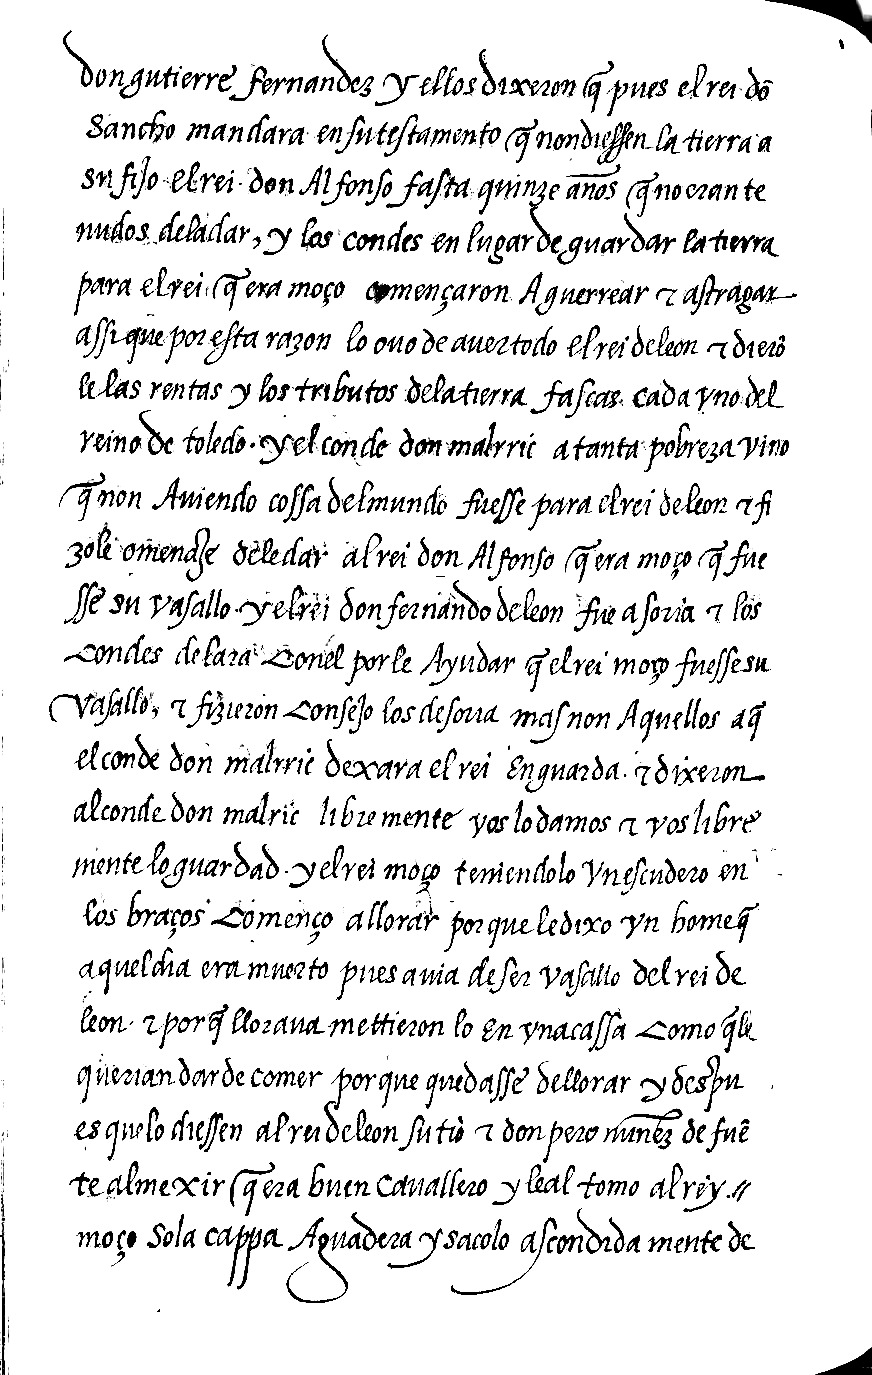 don gutierre fernandez y ellos dixeron q̃ pues el rei dõ
Sancho mandara en su testamento q̃ non diessen la tierra a
su fijo el rei don Alfonso fasta quinze años q̃ no eran te
nudos de la dar, y los condes en lugar de guardar la tierra
para el rei q̃ era moço començaron A guerrear ⁊ astragar
assi que por esta razon lo ovo de aver todo el rei de leon ⁊ dierõ
le las rentas y los tributos de la tierra fascas cada vno del
reino de toledo. y el conde don malrric a tanta pobreza vino
q̃ non Auiendo cossa del mundo fuesse para el rei de leon ⁊ fi
zole omenaȷe de le dar al rei don Alfonso q̃ era moço q̃ fue
sse su vasallo. y el rei don fernando de leon fue a soria ⁊ los
Condes de lara Con el por le Ayudar q̃ el rei moço fuesse su
vasallo, ⁊ fizieron Consejo los de soria mas non Aquellos a q̃
el conde don malrric dexara el rei En guarda. ⁊ dixeron
al conde don malric libremente vos lo damos ⁊ vos libre
mente lo guardad. y el rei moço teniendolo vn escudero en
los braços Començo a llorar por que le dixo vn home q̃
aquel dia era muerto pues auia de ser vasallo del rei de
leon. ⁊ por q̃ lloraua mettieron lo En vna cassa Como q̃ le
querian dar de comer por que quedasse de llorar y despu
es que lo diessen al rei de leon su tio ⁊ don pero nunez de fuẽ
te almexir q̃ era buen Cavallero y leal tomo al rey //
moço So la cappa Aguadera y sacolo ascondida mente de